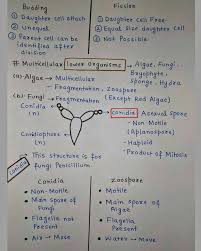 Budding
Fission
① Daughter cell attach
① Daughter cell Free
② Unequal
② Equal size daughter cell
③ Parent cell can be identified after division
③ Not
# Multicellular lower organisms → Algae, Fungi, Bryophyte, Sponge, Hydra
(a) Algae → Multicellular
→ Fragmentation, Zoospore
(b) Fungi → Fragmentation (Except Red Algae)
Conidia (n)
conidia → Asexual spore
- Non Motile (Aplanospore)
- Haploid
- Product of Mitosis
Conidiophore (n)
This structure is for fungi Penicillium.
conidia
Conidia
Zoospore
• Non-Motile
• Motile
• Main spore of Fungi
• Main spore of Algae
• Flagella not Present
• Flagella Present
• Air → Move
• Water → Move